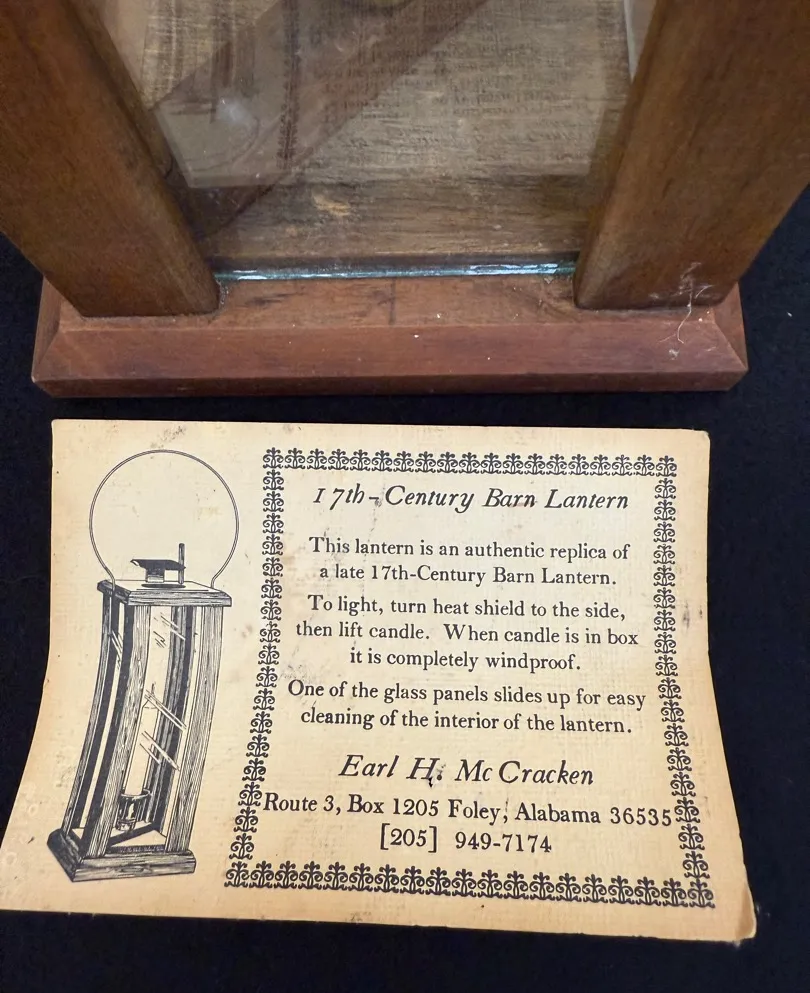 17th-Century Barn Lantern
This lantern is an authentic replica of
a late 17th-Century Barn Lantern.
To light, turn heat shield to the side,
then lift candle. When candle is in box
it is completely windproof.
One of the glass panels slides up for easy
cleaning of the interior of the lantern.
Earl H. McCracken
Route 3, Box 1205 Foley, Alabama 36535
[205] 949-7174